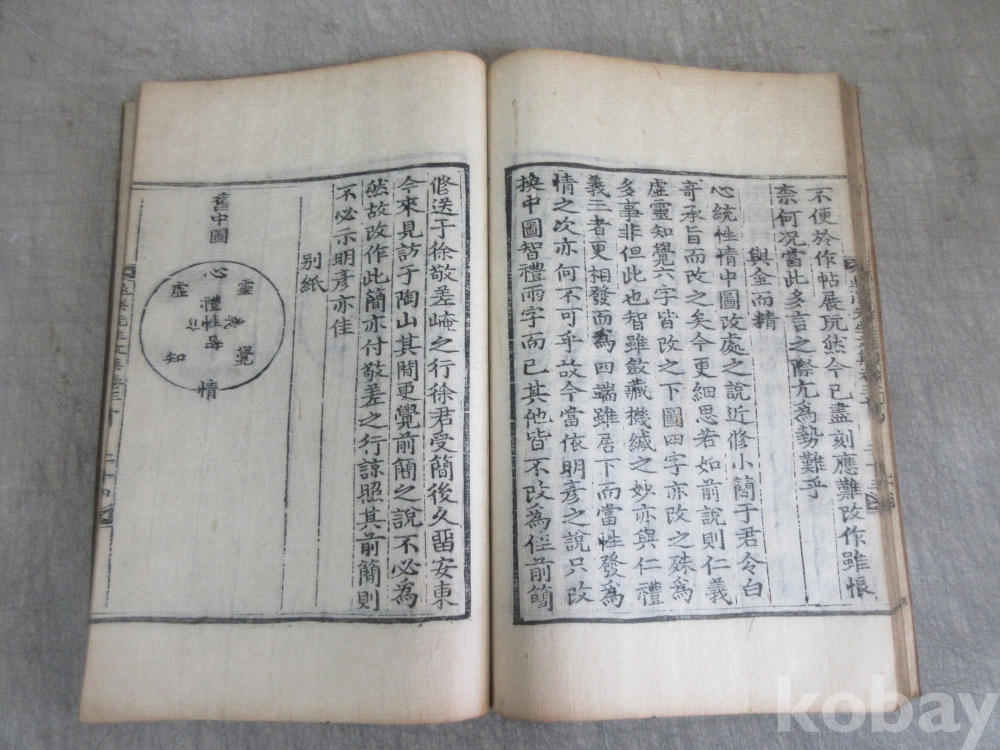 不便於作帖展玩然今已盡刻應難改作雖悵
柰何況當此多言之際尤爲勢難乎
與金而精
心統性情中圖改處之說近修小簡于君令白
寄承旨而改之矣今更細思若如前說則仁義
虛靈知覺六字皆改之下圖四字亦改之殊爲
多事非但此也智雖斂藏機緘之妙亦與仁禮
義三者更相發而爲四端雖居下而當性發爲
情之次亦何不可乎故今當依明彦之說只改
換中圖智禮兩字而已其他皆不改爲佳前簡
修送于徐敬差崦之行徐君受簡後久留安東
今來見訪于陶山其間更覺前簡之說不必爲
然故改作此簡亦付敬差之行諒照其前簡則
不必示明彦亦佳
別紙
舊中圖
心
虛 靈
禮
性
知 覺
情
二十四
kobay